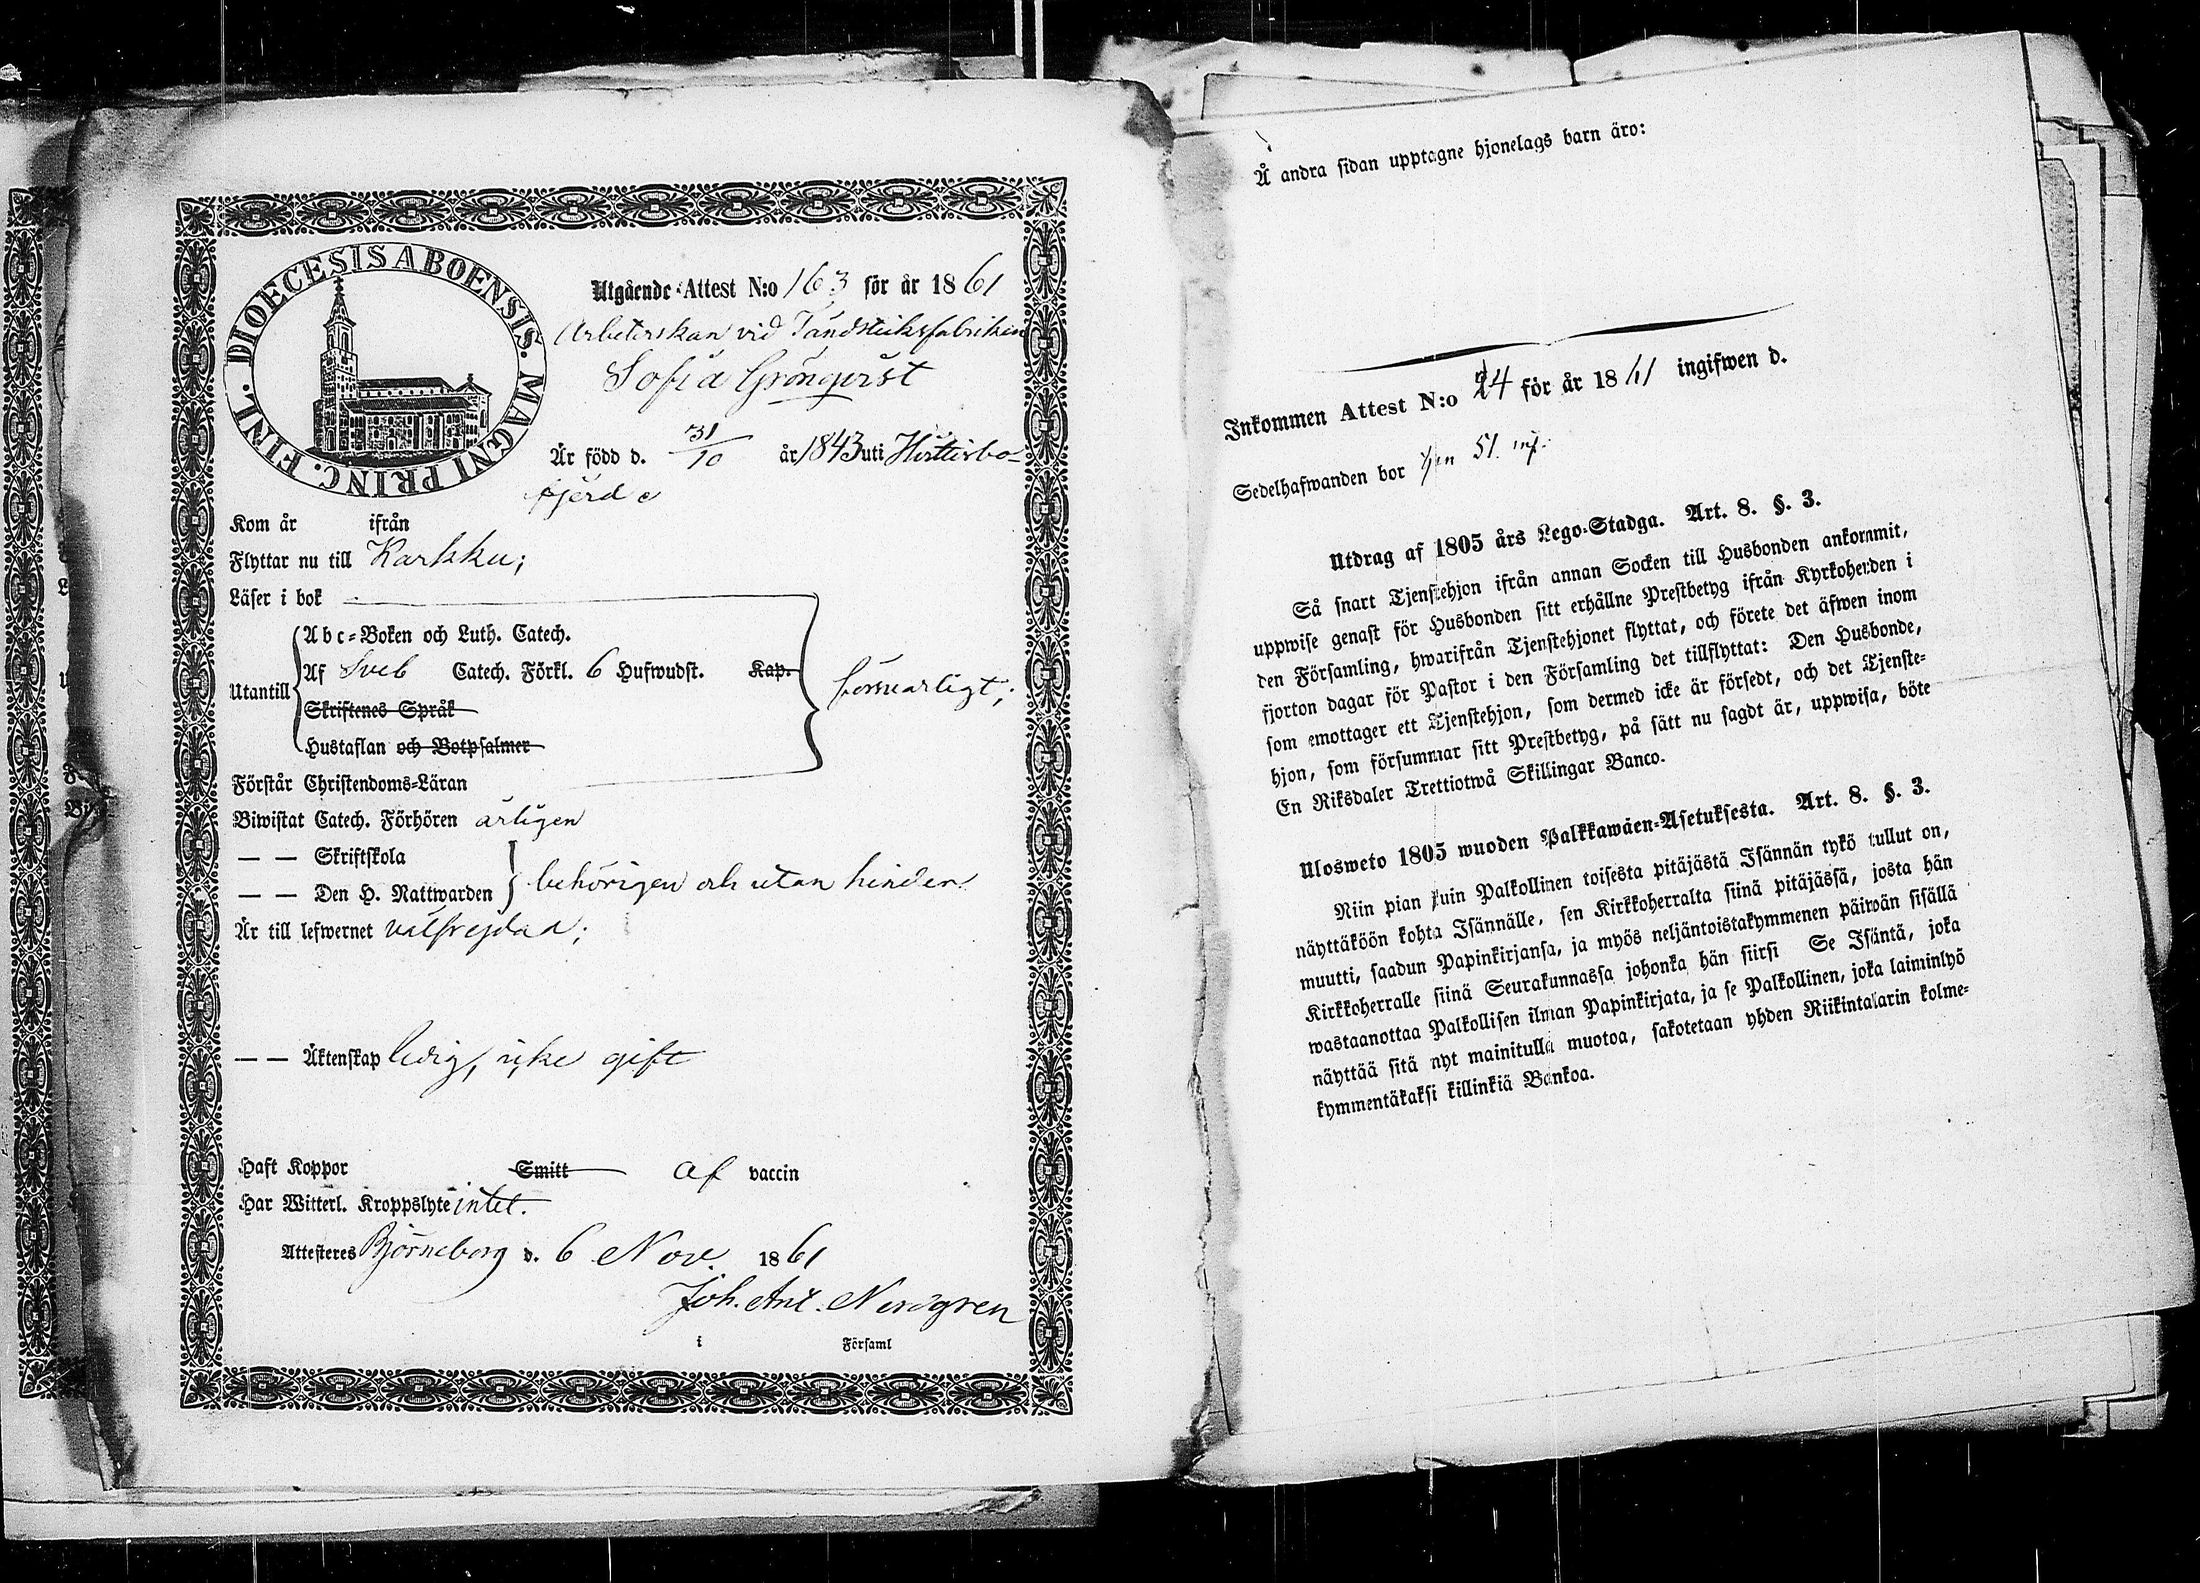 DIOECESIS ABOENSIS. MAGNI PRINC. FINL.
Utgående Attest N:o 163 för år 1861
Arbeterskan vid Tändsticksfabriken
Sofia Grönqvist
Är född d. 31/10 år 1843 uti
fjerd
Kom år ifrån
Flyttar nu till Karkku;
Läser i bok
Abc-Boken och Luth. Catech.
Utantill Af Sveb Catech. Förkl. 6 Hufwudst. Kap. försvarligt;
Skriftenes Språk
Hustaflan och Botpsalmer
Förstår Christendoms-Läran
Biwistat Catech. Förhören årligen
— — Skriftskola
— — Den H. Nattwarden behörigen och utan hinder.
Är till lefwernet välfrejdad;
— — Äktenskap ledig, icke gift
Haft Koppor Smitt af vaccin
Har Witterl. Kroppslyte intet.
Attesteres Björneborg d. 6 Nov. 1861
Joh. Ant. Nordgren
i Församl
Å andra sidan upptagne hjonelags barn äro:
Inkommen Attest N:o 24 för år 1861 ingifwen d.
Sedelhafwanden bor
Utdrag af 1805 års Lego-Stadga. Art. 8. §. 3.
Så snart Tjenstehjon ifrån annan Socken till Husbonden ankommit,
uppwise genast för Husbonden sitt erhållne Prestbetyg ifrån Kyrkoherden i
den Församling, hwarifrån Tjenstehjonet flyttat, och förete det äfwen inom
fjorton dagar för Pastor i den Församling det tillflyttat: Den Husbonde,
som emottager ett Tjenstehjon, som dermed icke är försedt, och det Tjenste-
hjon, som försummar sitt Prestbetyg, på sätt nu sagdt är, uppwisa, böte
En Riksdaler Trettiotwå Skillingar Banco.
Ulosweto 1805 wuoden Palkkawäen-Asetuksesta. Art. 8. §. 3.
Niin pian kuin Palkollinen toisesta pitäjästä Isännän tykö tullut on,
näyttäköön kohta Isännälle, sen Kirkkoherralta siinä pitäjässä, josta hän
muutti, saadun Papinkirjansa, ja myös neljäntoistakymmenen päiwän sisällä
Kirkkoherralle siinä Seurakunnassa johonka hän siirsi Se Isäntä, joka
wastaanottaa Palkollisen ilman Papinkirjata, ja se Palkollinen, joka laiminlyö
näyttää sitä nyt mainitulla muotoa, sakotetaan yhden Riikintalarin kolme-
kymmentäkaksi killinkiä Bankoa.